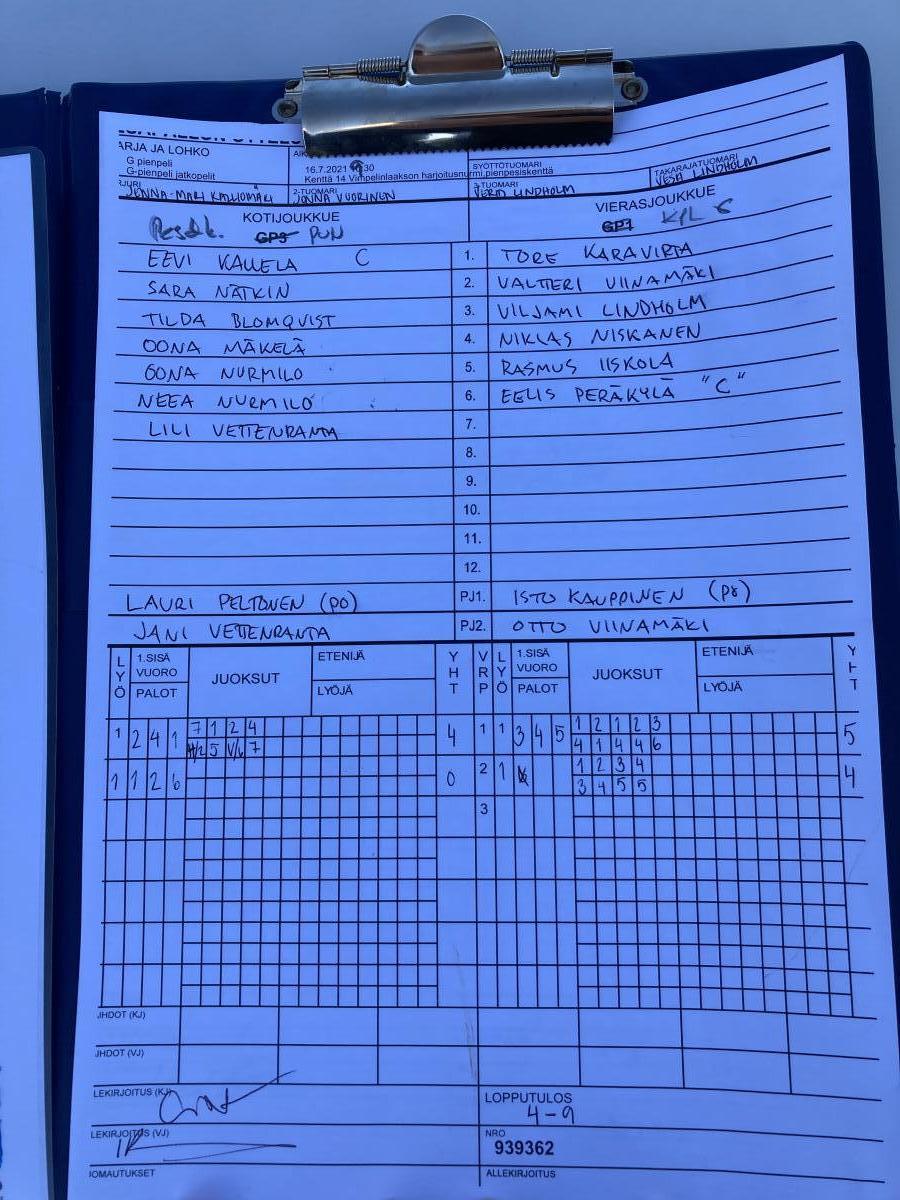 ARJA JA LOHKO
G pienpeli
G-pienpeli jatkopelit
16.7.2021 30
Kenttä 14 Vimpelinlaakson harjoitusnurmi,pienpesiskenttä
SYÖTTÖTUOMARI
TAKARAJATUOMARI
JENNA-MARI KALLIOMÄKI
2-TUOMARI
JONNA VUORINEN
3-TUOMARI
LINDHOLM
VESA LINDHOLM
KOTIJOUKKUE
VIERASJOUKKUE
GP3 PUN
GP1 KPL
EEVI KALLELA C 1. TORE KARAVIRTA
SARA NÄTKIN 2. VALTTERI VIINAMÄKI
TILDA BLOMQVIST 3. VILJAMI LINDHOLM
OONA MÄKELÄ 4. NIKLAS NISKANEN
OONA NURMILO 5. RASMUS IISKOLA
NEEA NURMILO 6. EELIS PERÄKYLÄ "C"
LILI VETTENRANTA 7.
8.
9.
10.
11.
12.
LAURI PELTONEN (PO) PJ1. ISTO KAUPPINEN
JANI VETTENRANTA PJ2. OTTO VIINAMÄKI
LYÖ 1.SISÄ VUORO PALOT JUOKSUT ETENIJÄ LYÖJÄ YHT VRP LYÖ 1.SISÄ VUORO PALOT JUOKSUT ETENIJÄ LYÖJÄ YHT
1 2 4 1 7 1 2 4 4 1 1 3 4 5 1 2 1 2 3 5
5 7 4 1 4 4 6
1 1 2 6 0 2 1 1 2 3 4 4
3 4 5 5
3
JHDOT (KJ)
JHDOT (VJ)
LEKIRJOITUS (KJ)
LOPPUTULOS
4-9
LEKIRJOITUS (VJ)
NRO
939362
IOMAUTUKSET
ALLEKIRJOITUS